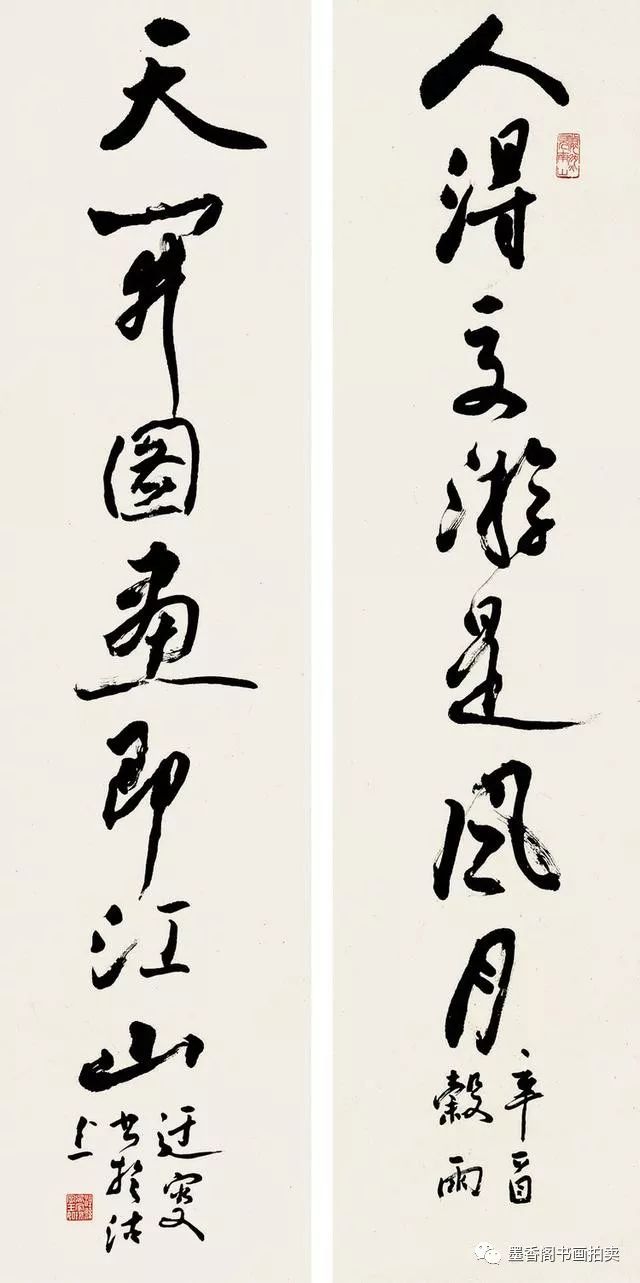 人得交游是风月
辛酉
穀雨
天开图画即江山
迂叟
书於沽
上
墨香阁书画拍卖